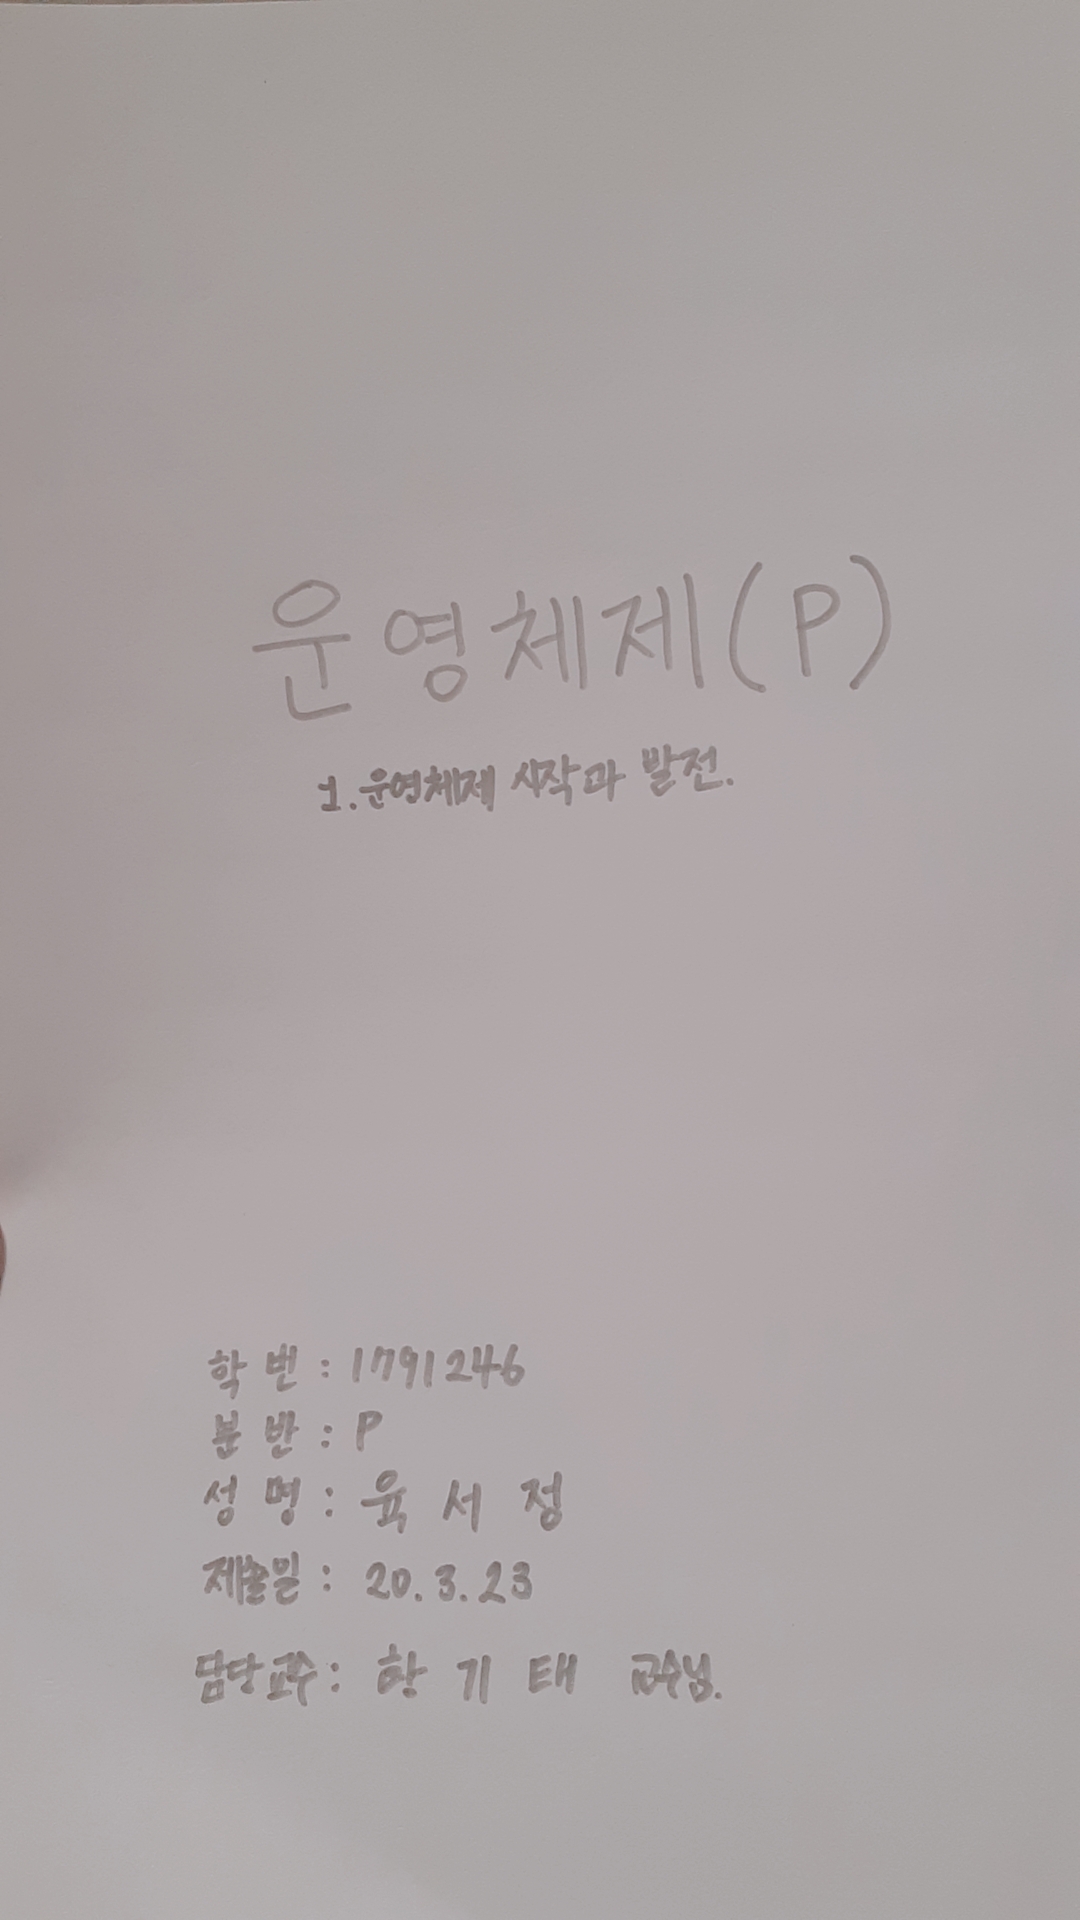 운영체제(P)
1. 운영체제 시작과 발전.
학번 : 1791246
분반 : P
성명 : 육서정
제출일 : 20.3.23
담당교수 : 항기태 교수님.